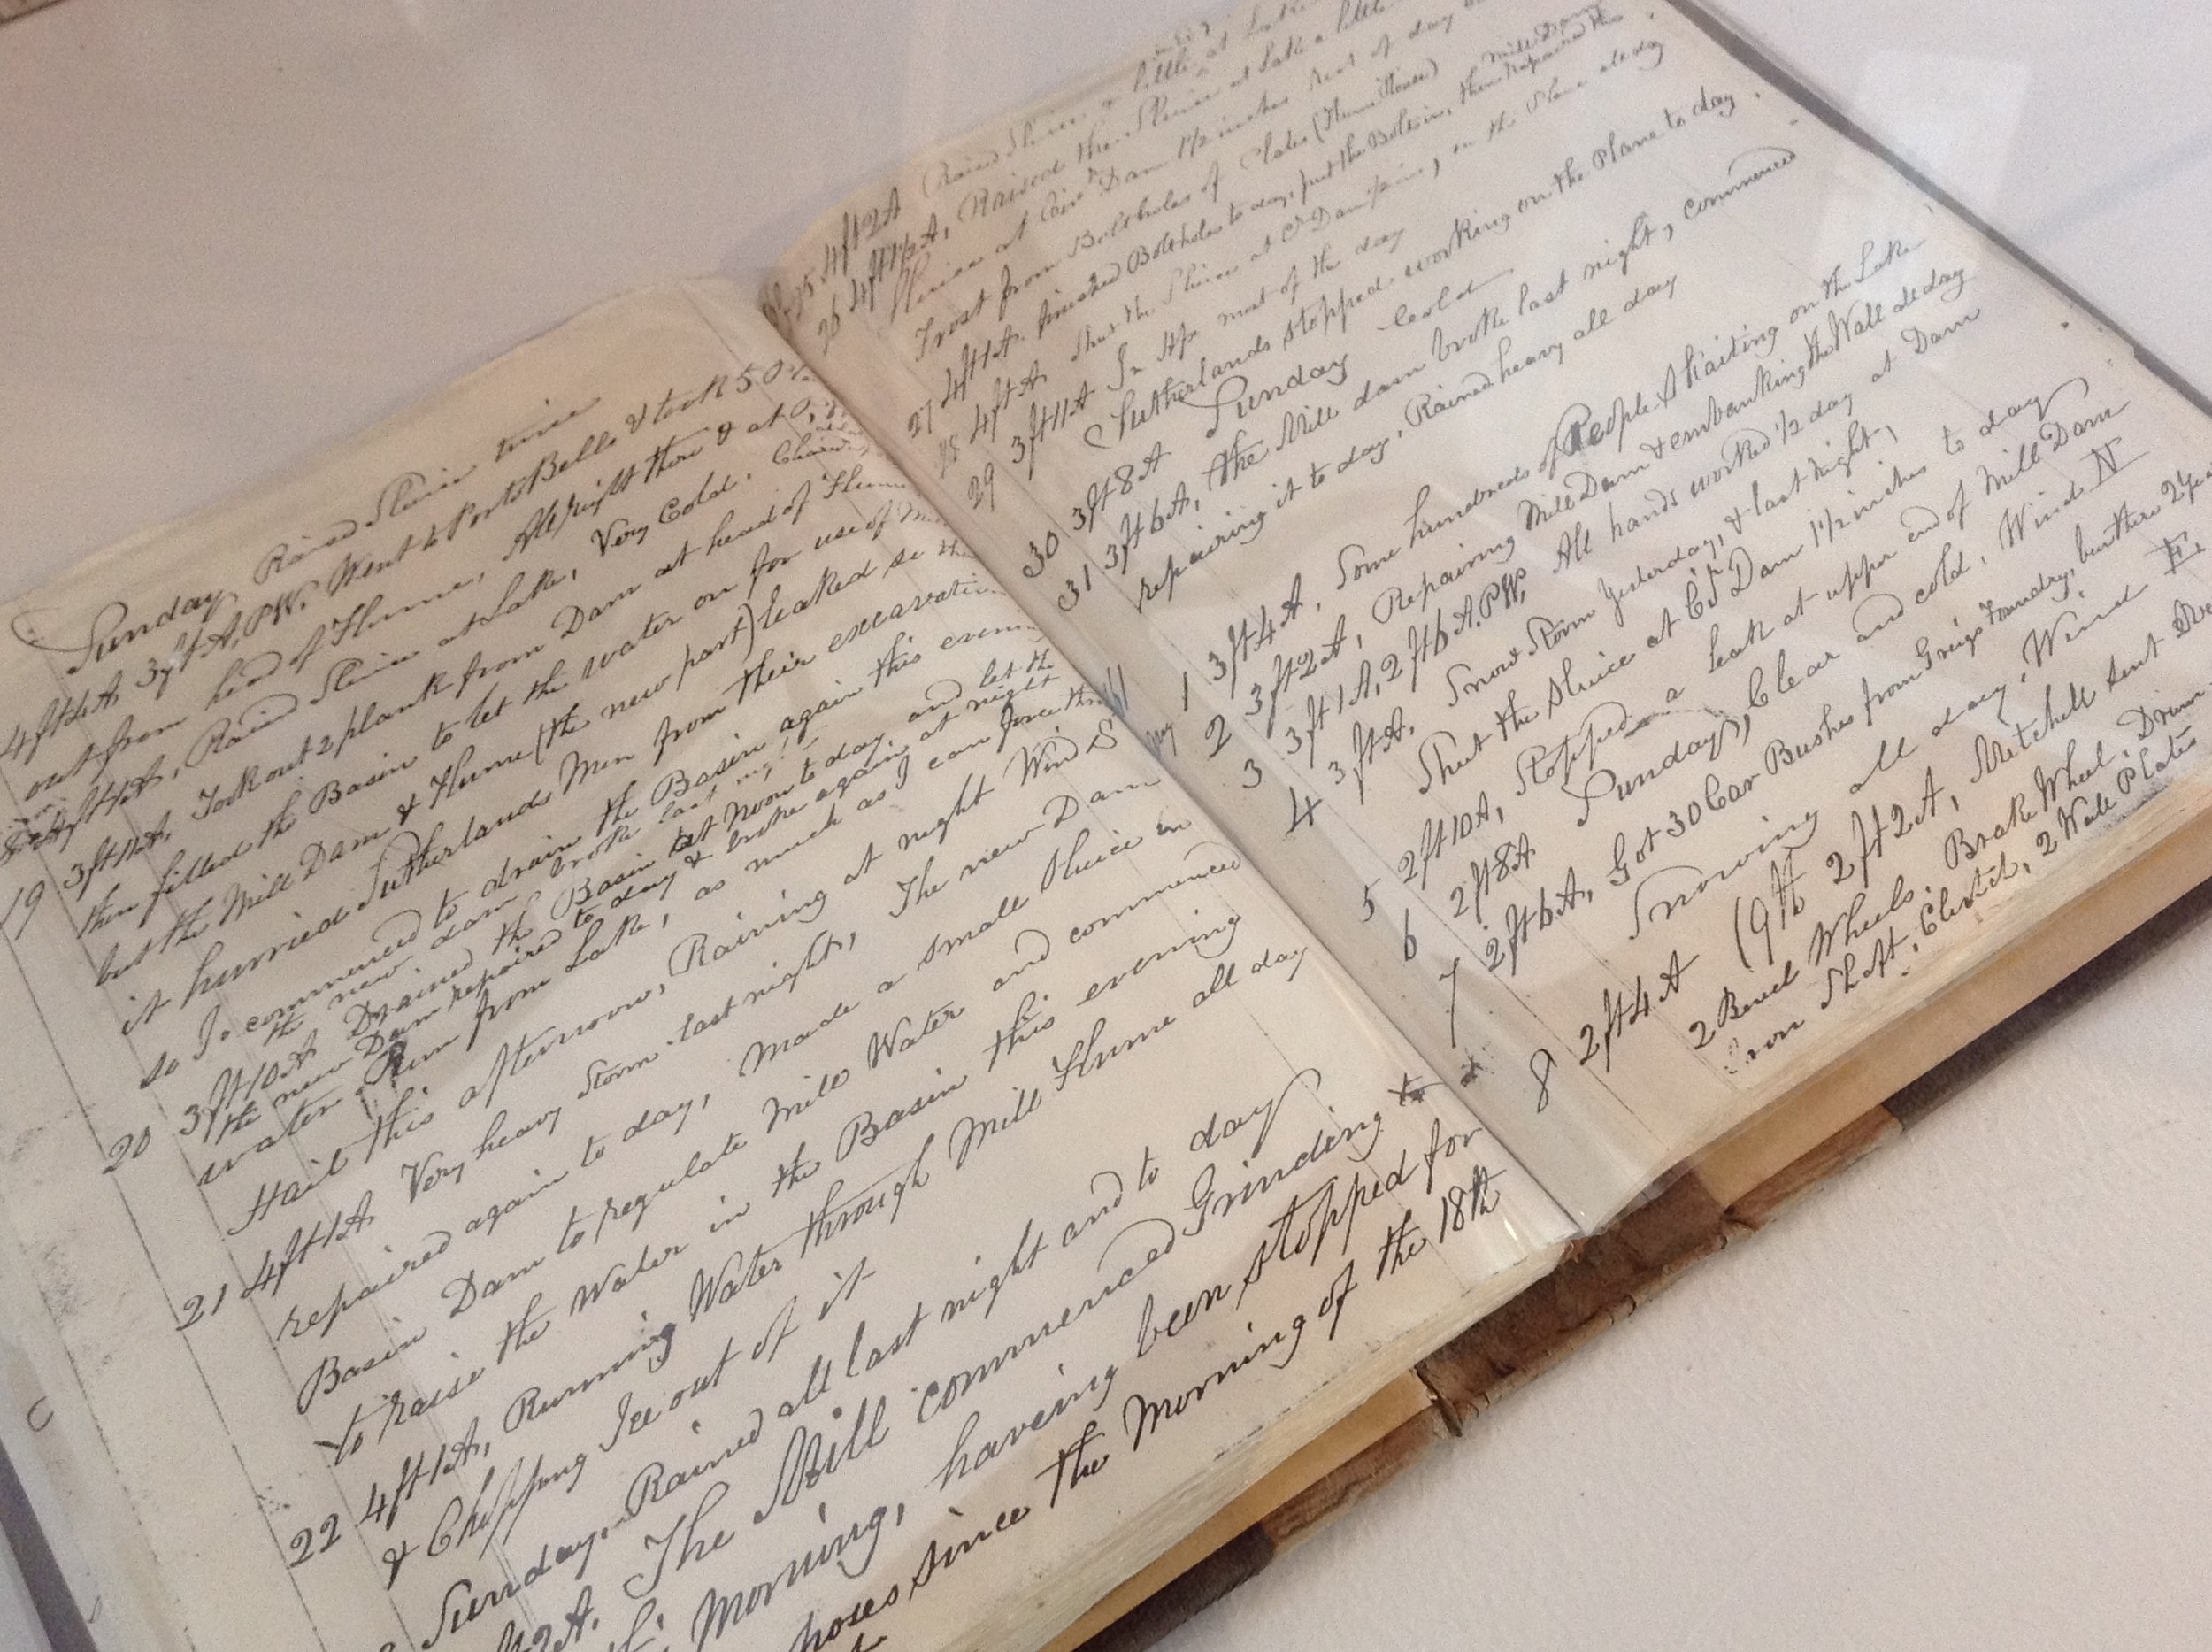 Sunday Raised Sluice twice
4ft4A 3ft A, P.W. Went to Porto Bello & took 50
out from head of Flume, All right there & at
4ft4A, Raised Sluice at Lake, Very Cold.
19 3ft11A, Took out 2 plank from Dam at head of Flume
then filled the Basin to let the water on for use of
but the Mill Dam & Flume (the new part) leaked so the
it hurried Sutherlands Men from their excavation
so I commenced to drain the Basin again this evening
the new dam broke last ngt
20 3ft10A Drained the Basin at Noon to day and let the
the new Dam repaired to day & broke again at night
water Run from Lake, as much as I can force thro
Hail this afternoon, Raining at night Wind S
21 4ft1A Very heavy Storm last night, The new Dam
repaired again to day, Made a small Sluice in
Basin Dam to regulate Mill Water and commenced
to raise the Water in the Basin this evening
22 4ft1A, Running Water through Mill Flume all day
& Chipping Ice out of it
Sunday. Rained all last night and to day
2A. The Mill commenced Grinding
Morning, having been stopped for
since the Morning of the 18th
25 4ft2A Raised Sluice a little at Lake
26 4ft1½A, Raised the Sluice at Lake a little
Sluice at Dam 1½ inches rest of day
Frost from Boltholes of Plates (Flume House)
27 4ft1A. finished Boltholes to day, put the Bolts in, then repaired the
Mill Dam
28 4ft A Shut the Sluice at Dam in the Plane all day
29 3ft11A In Ap most of the day
Sutherlands stopped working on the Plane to day
30 3ft8A Sunday Cold
31 3ft6A, The Mill dam broke last night, commenced
repairing it to day, Rained heavy all day
1 3ft4A, Some hundreds of People Skaiting on the Lake
2 3ft2A, Repairing Mill Dam & embanking the Wall all day
3 3ft1A, 2ft6A.P.W, All hands worked ½ day at Dam
4 3ft A, Snow Storm Yesterday, & last night,
Shut the Sluice at Dam 1½ inches to day
5 2ft10A, Stopped a leak at upper end of Mill Dam
6 2ft8A Sunday, Clear and cold, Wind N
7 2ft6A, Got 30 Car Bushes from Greigs Foundry, but there
Snowing all day. Wind E
8 2ft4A (9th 2ft2A, Mitchell sent
2 Bevel Wheels. Brake Wheel. Drum
Iron Shaft, Clutch, 2 Wall Plates